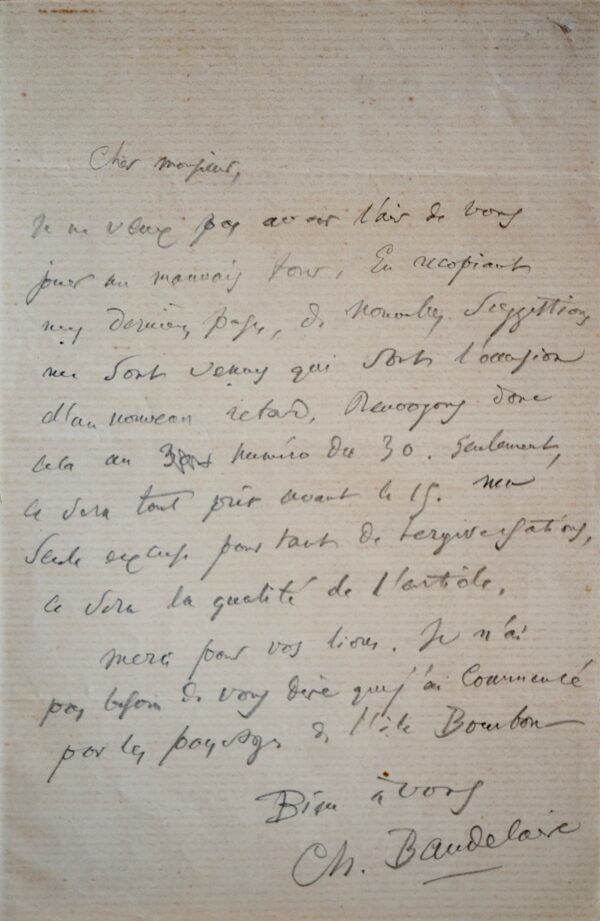 Cher monsieur,
Je ne veux pas avoir l'air de vous
jouer un mauvais tour. En recopiant
mes dernières pages, de nouvelles suggestions
me sont venues qui sont l'occasion
d'un nouveau retard. Renvoyons donc
cela au numéro du 30. Seulement,
ce sera tout prêt avant le 15. Ma
seule excuse pour tant de tergiversations,
ce sera la qualité de l'article.
Merci pour vos livres. Je n'ai
pas besoin de vous dire que j'ai commencé
par les paysages de l'île Bourbon
Bien à vous
Ch. Baudelaire